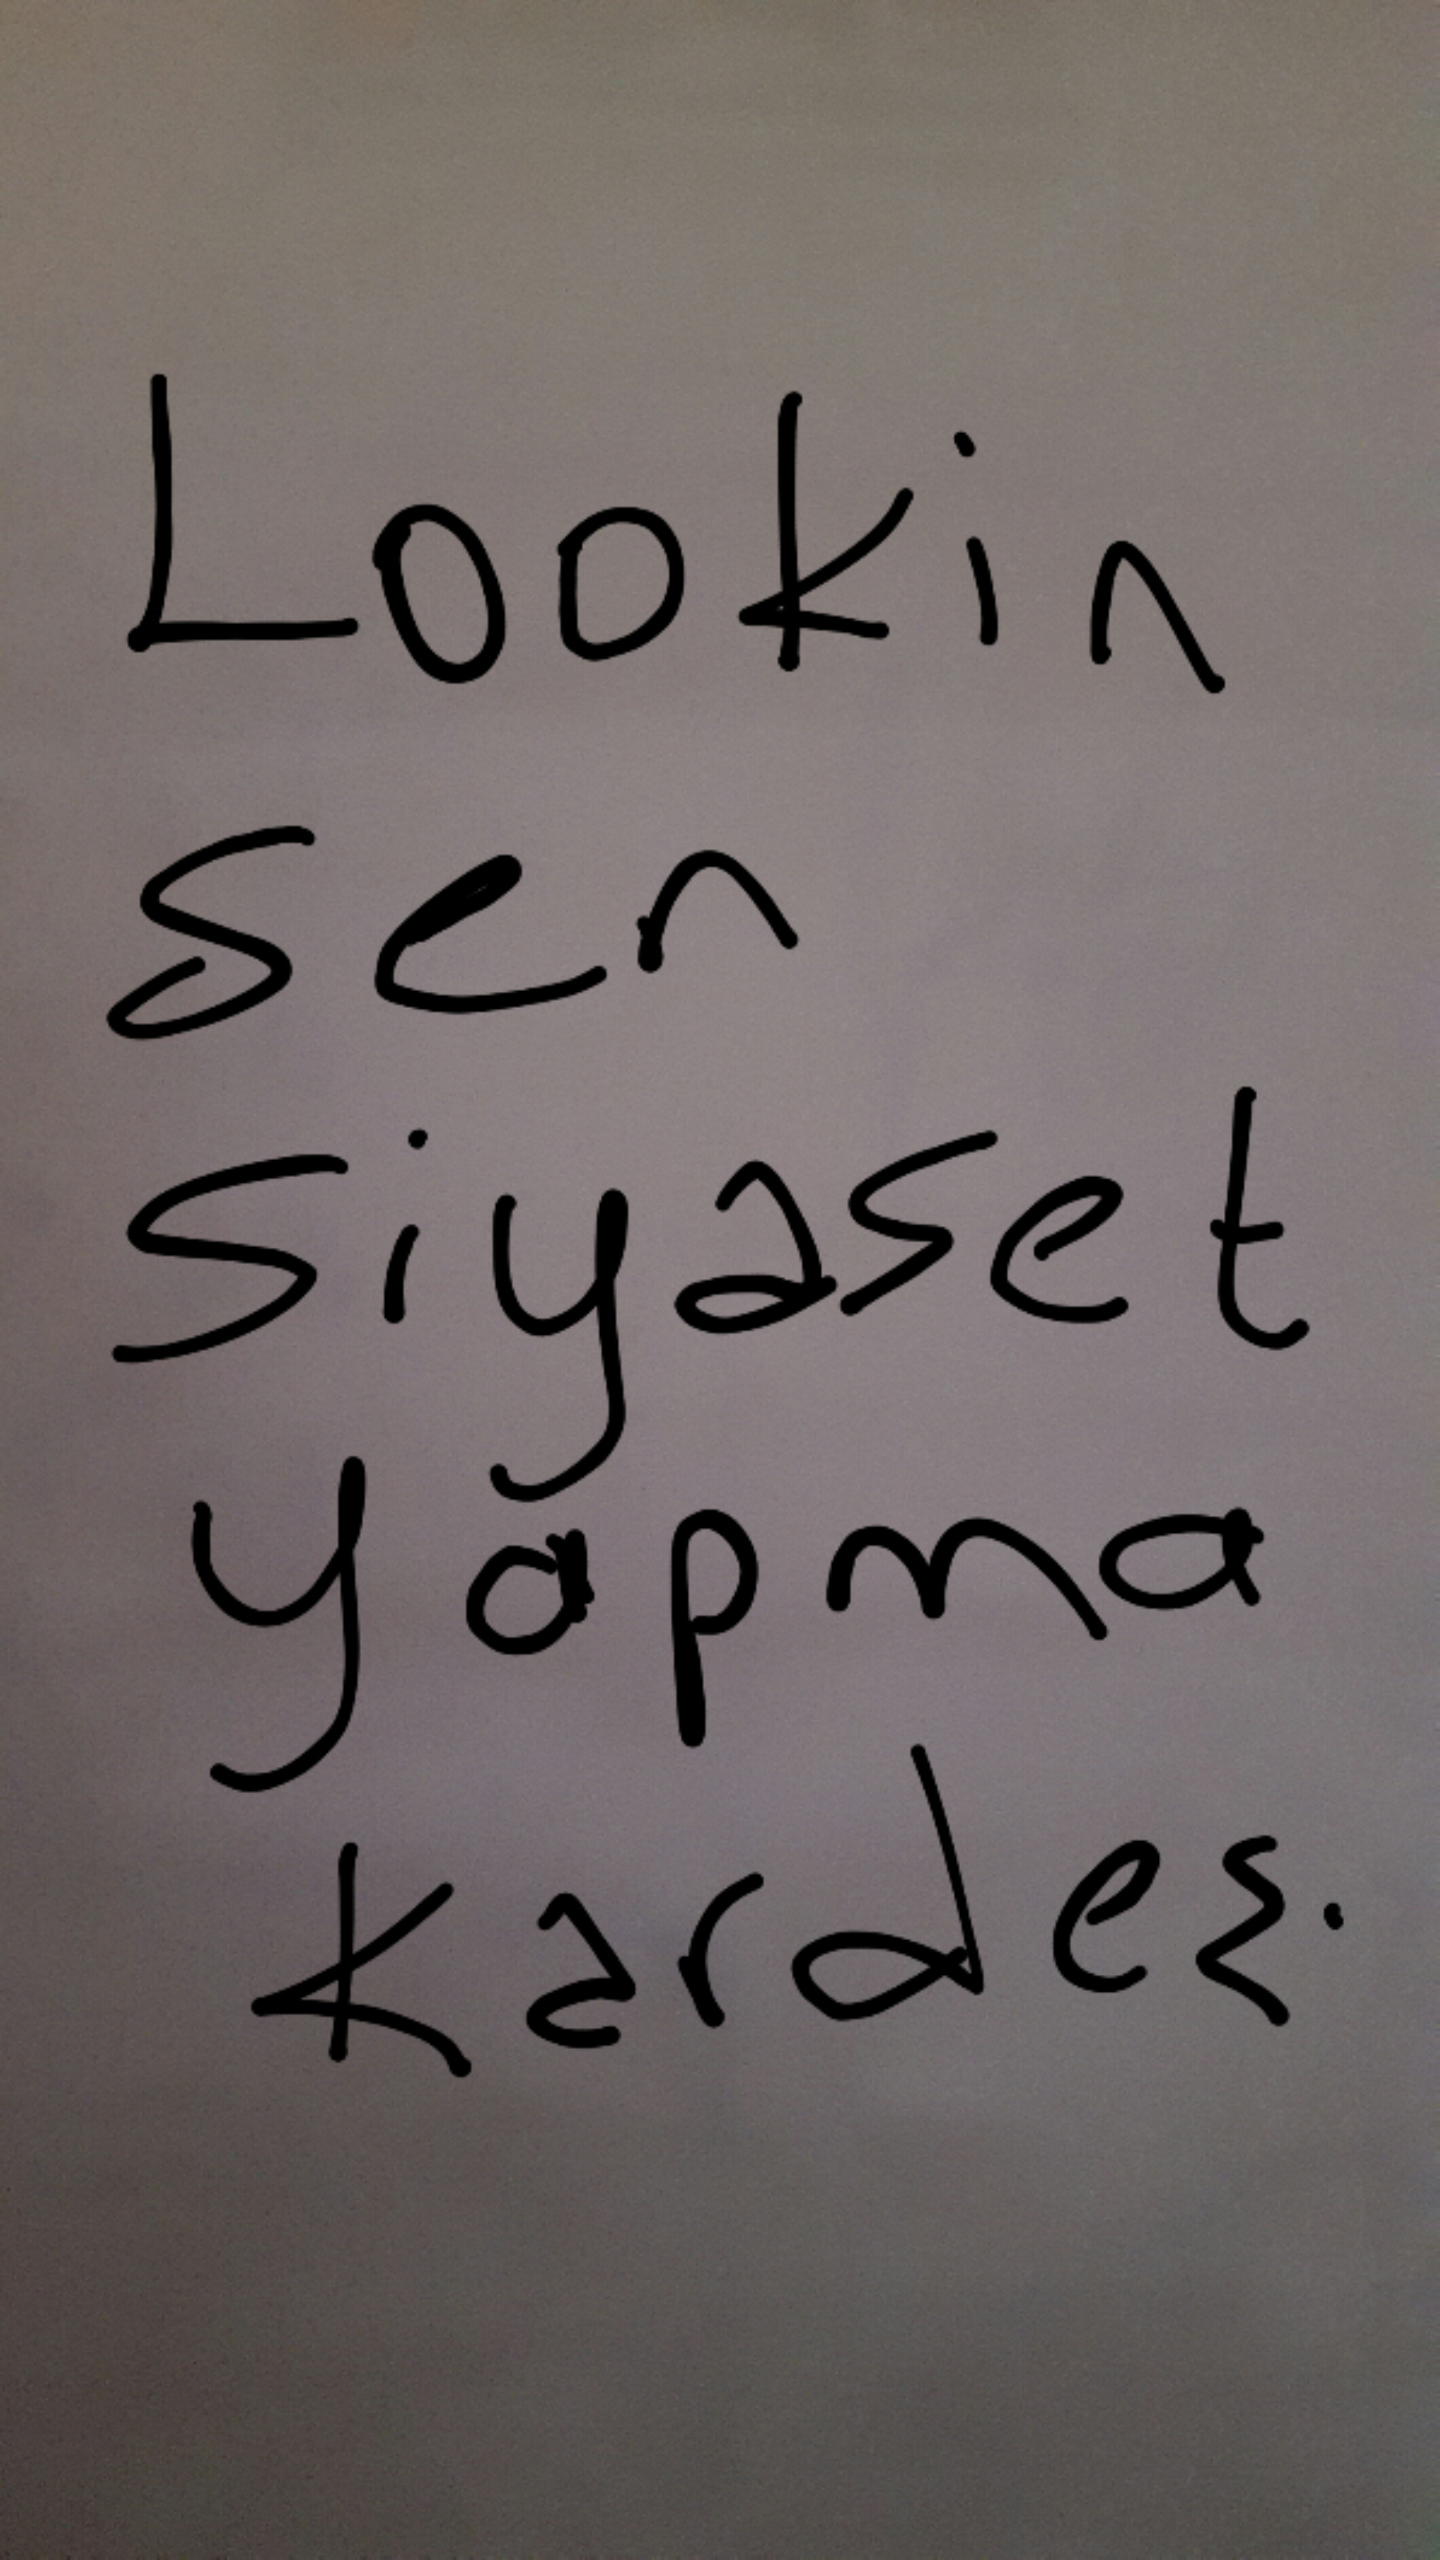 Lookin
sen
siyaset
yapma
kardeş.